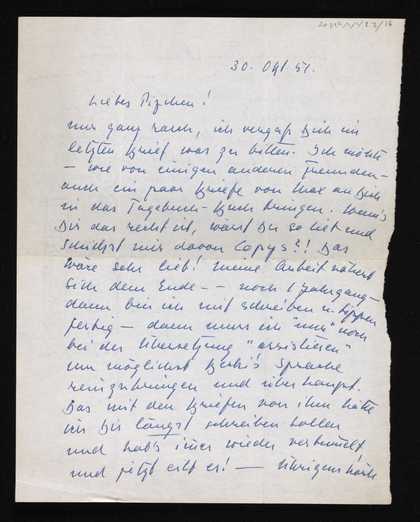 30. Okt 51.
Liebes Pipchen!
nur ganz rasch, ich vergaß Dich im
letzten Brief was zu bitten. Ich möchte
– wie von einigen anderen Freunden –
auch ein paar Briefe von ihm an Dich
in das Tagebuch-Buch bringen. Wenn's
Dir das recht ist, wärst Du so lieb und
schickst mir davon Copys?! Das
wäre sehr lieb! Meine Arbeit nähert
sich dem Ende – – noch 1 Jahrgang –
dann bin ich mit schreiben u. tippen
fertig – dann muss ich "nur" noch
bei der Übersetzung "assistieren"
um möglichst Sprache
reinzubringen und überhaupt.
Das mit den Briefen von ihm hätte
ich Dir längst schreiben sollen
und hab's immer wieder verbummelt
und jetzt eilt es! – Übrigens